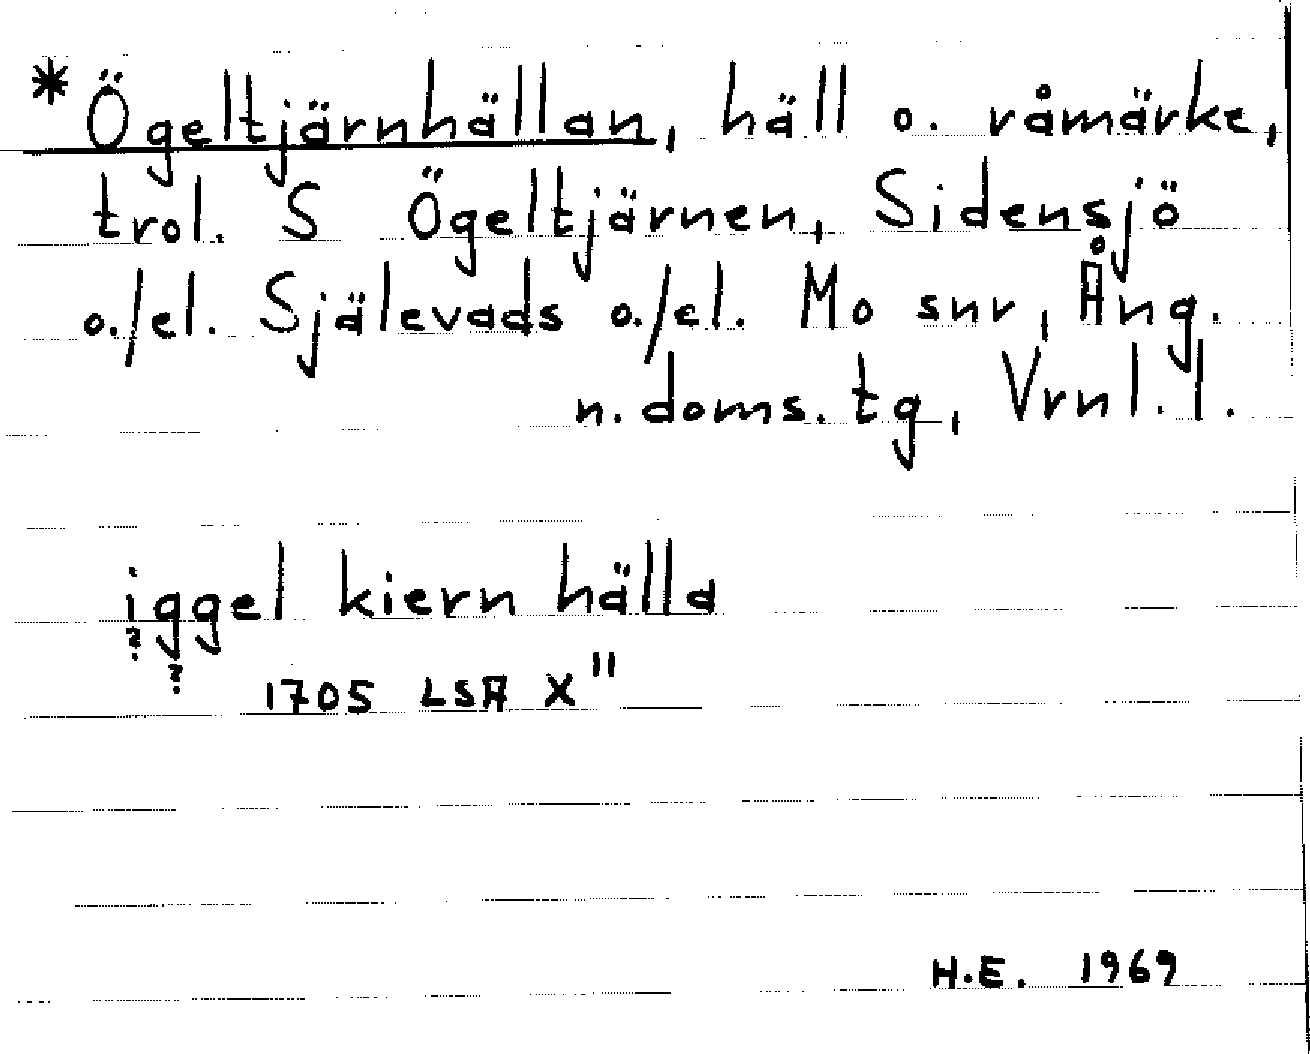 *Ögeltjärnhällan, häll o. råmärke,
trol. S Ögeltjärnen, Sidensjö
o./el. Själevads o./el. Mo snr, Ång.
n. doms. tg, Vrnl. l.
iggel kiern hälla
? ?
1705 LSA X"
H.E. 1969